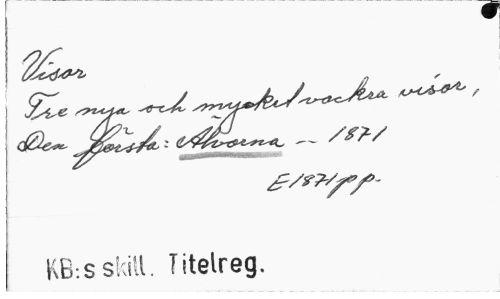 Visor
Tre nya och mycket vackra visor,
Den första: Älvorna -- 1871
E1871pp.
KB:s skill. Titelreg.